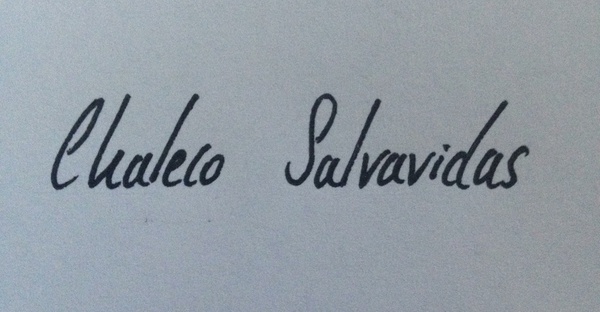 Chaleco Salvavidas